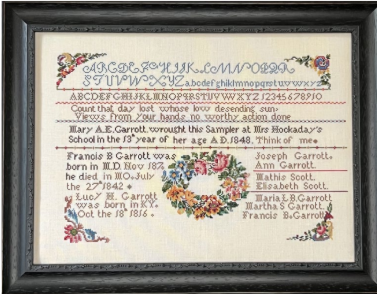 ABCDEFGHIJKLMNOPQR
STUVWXYZ abcdefghijklmnopqrstuvwxyz
ABCDEFGHIJKLMNOPQRSTUVWXYZ 12345678910
Count that day lost whose low desending sun
Views from your hands no worthy action done
Mary A.E. Garrott wrought this Sampler at Mrs Hockaday's
School in the 13th year of her age A.D. 1848. Think of me
Francis B Garrott was
born in M.D. Nov
he died in MO. July
the 27th 1842
Lucy M. Garrott
was born in KY.
Oct the 18th 1816.
Joseph Garrott.
Ann Garrott.
Mathis Scott.
Elisabeth Scott.
Maria L.B. Garrott
Martha S Garrott.
Francis B. Garrott